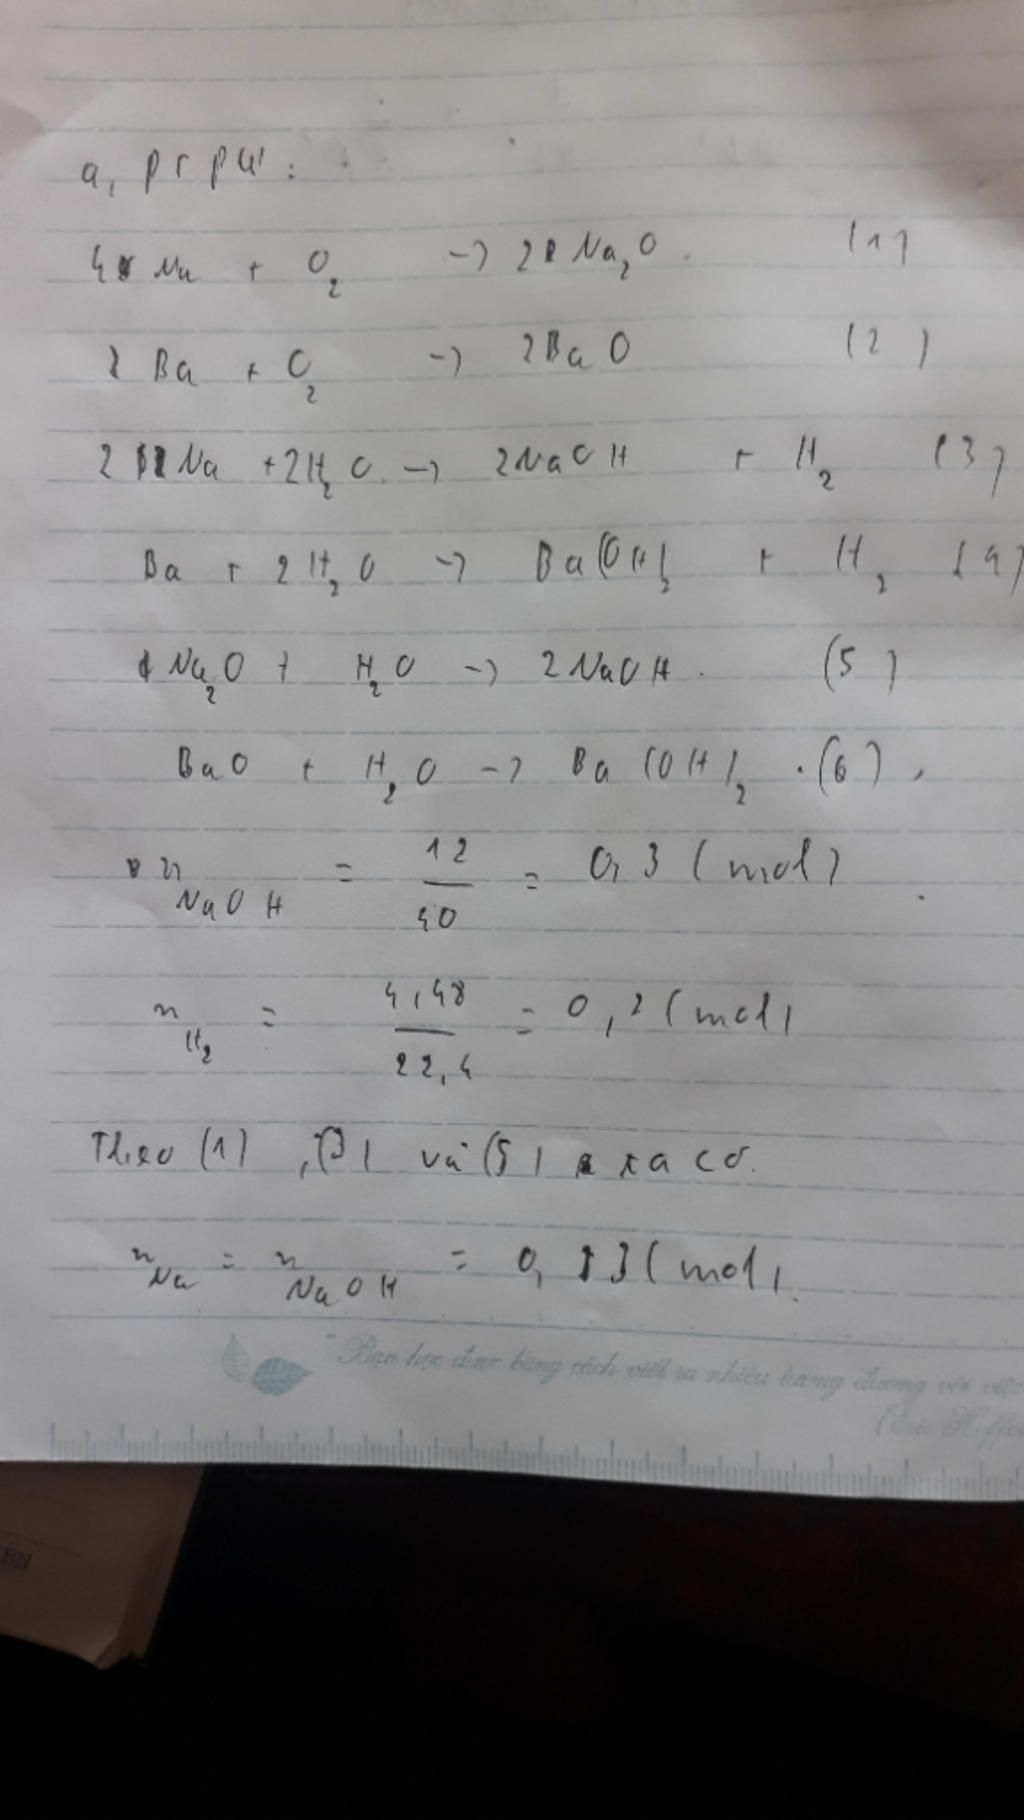 a, PTPƯ:
4 Na + O2 -> 2 Na2O. (1)
2 Ba + O2 -> 2BaO (2)
2 Na + 2H2O -> 2NaOH + H2 (3)
Ba + 2H2O -> Ba(OH)2 + H2 (4)
Na2O + H2O -> 2NaOH. (5)
BaO + H2O -> Ba(OH)2. (6),
nNaOH = 12/40 = 0,3 (mol)
nH2 = 4,48/22,4 = 0,2 (mol)
Theo (1), (3) và (5) ta có.
nNa = nNaOH = 0,3 (mol).
"Bạn học được bằng cách viết ra nhiều tương đương với việc
(Eric Hoffe